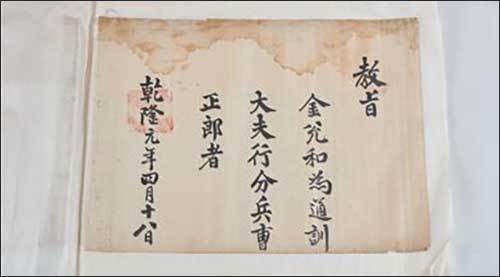 敎旨
金兊和為通訓
大夫行分兵曹
正郎者
乾隆元年四月十八日